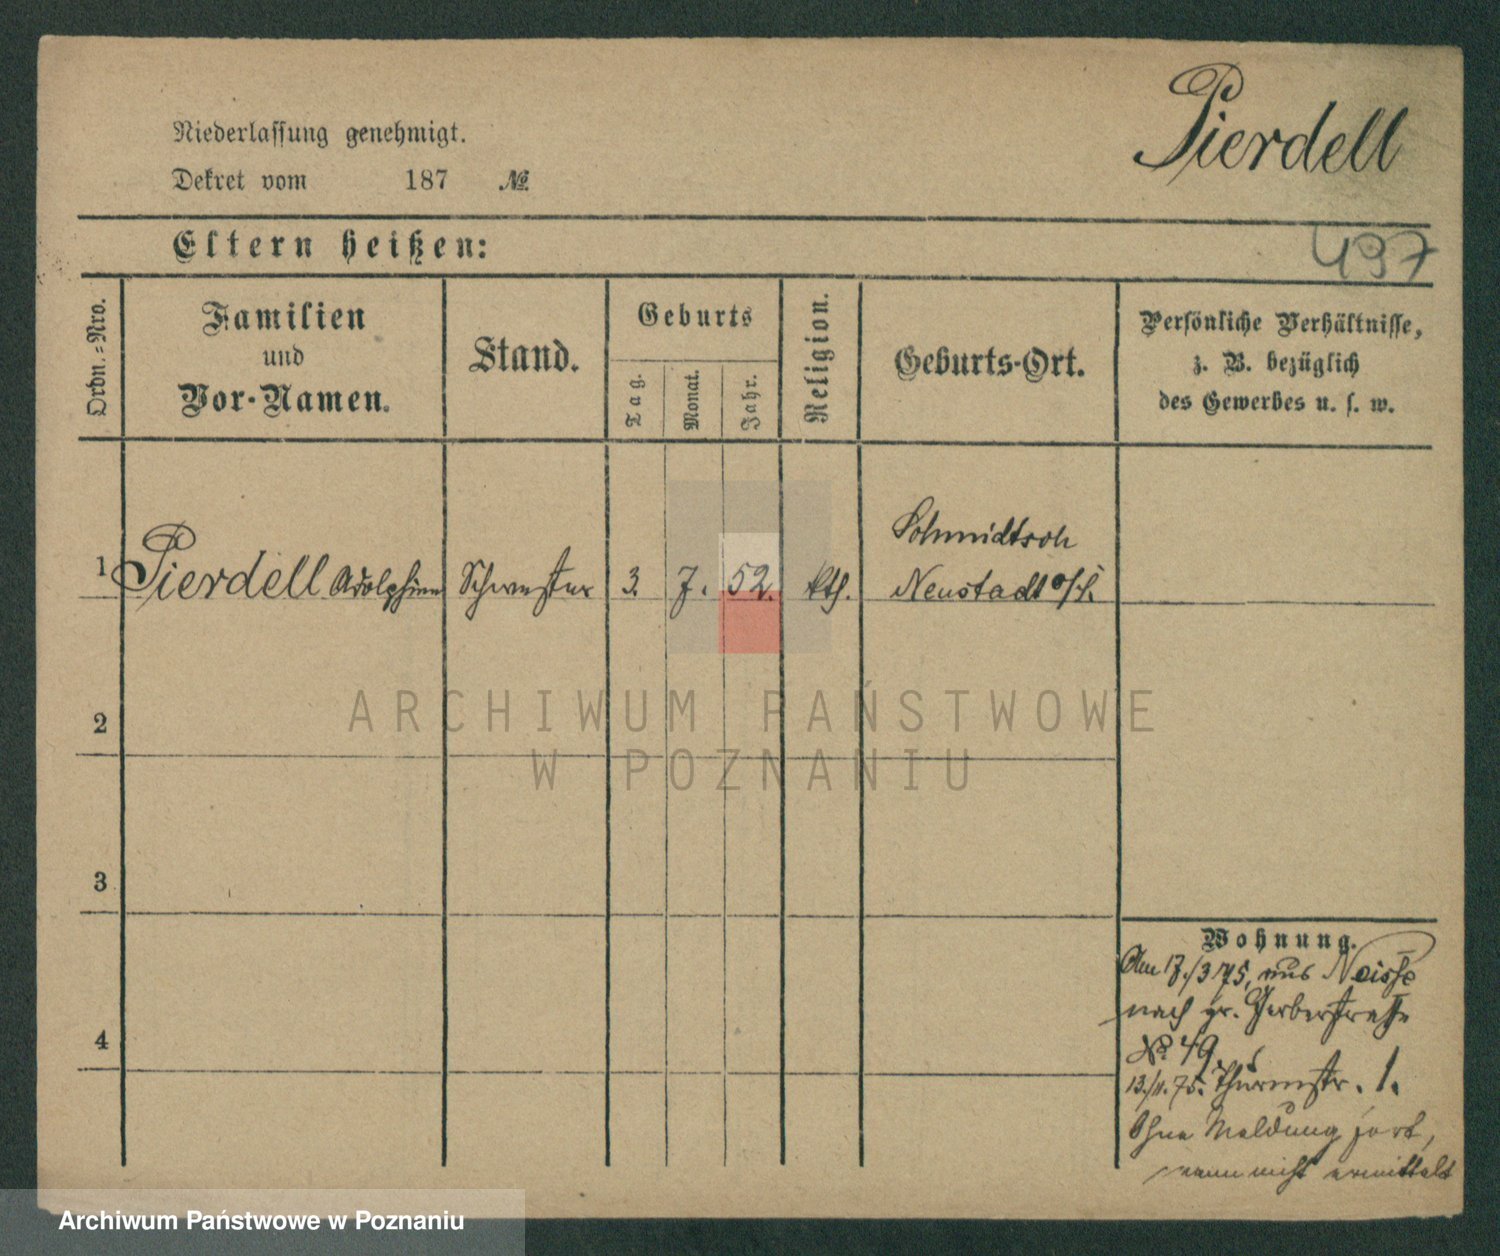 Pierdell
Niederlassung genehmigt.
Dekret vom 187 №
Eltern heißen:
497
Ordn.=Nro.
Familien
und
Vor-Namen.
Stand.
Geburts
Tag.
Monat.
Jahr.
Religion.
Geburts-Ort.
Persönliche Verhältnisse,
z. B. bezüglich
des Gewerbes u. s. w.
Schmidtsch
1 Pierdell Adolphine Schwester 3. 7. 52. kth. Neustadt o/S.
ARCHIWUM PAŃSTWOWE
W POZNANIU
2
3
4
Wohnung.
Am 17./3 75, aus Neisse
nach gr. Gerberstraße
№ 49
13./11. 75. Thurmstr. 1.
Ohne Meldung fort,
nicht ermittelt
Archiwum Państwowe w Poznaniu